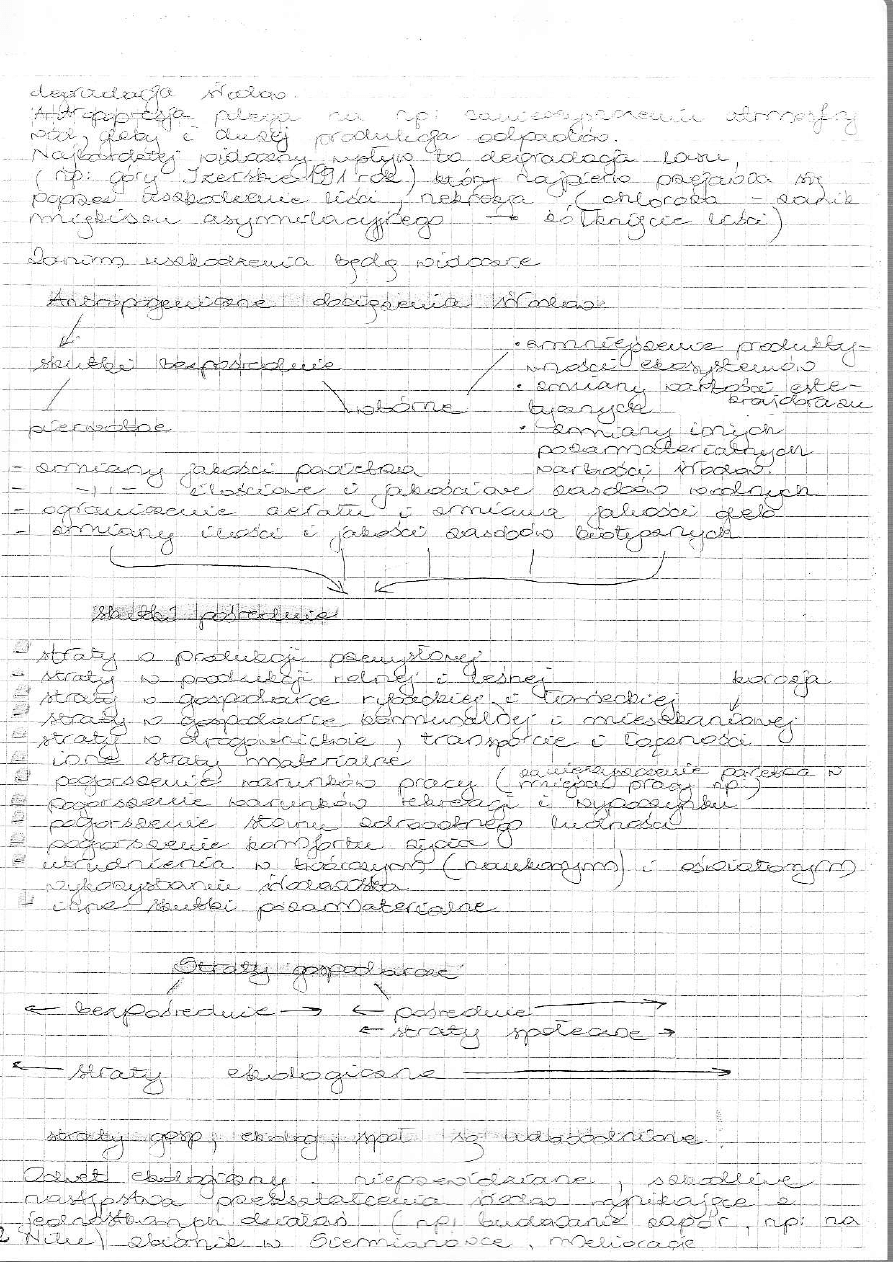 degradacja środow.
Antropopresja polega na np: zanieczyszczeniu atmosfery
wód, gleby i dużej produkcja odpadów.
Najbardziej widoczny wpływ to degradacja lasu,
(np: góry Izerskie 1991 rok) który najpierw przejawia się
poprzez uszkodzenie liści, nekroza (chloroza - zanik
miękiszu asymilacyjnego → żółknięcie liści)
Zanim uszkodzenia będą widoczne
Antropogeniczne obciążenia środow.
skutki bezpośrednie
• zmniejszenie produkty-
wności ekosystemów
• zmiany wartości este-
tycznych krajobrazu
wtórne
pierwotne
• zmiany innych
pozamaterialnych
wartości środow.
- zmiany jakości powietrza
- -,,- ilościowe i jakościowe zasobów wodnych
- ograniczenie areału i zmiana jakości gleb
- zmiany ilości i jakości zasobów biotycznych
skutki pośrednie
straty w produkcji przemysłowej
- straty w produkcji rolnej i leśnej
korozja
straty w gospodarce rybackiej i łowieckiej
straty w gospodarce komunalnej i mieszkaniowej
straty w drogownictwie, transporcie i łączności
inne straty materialne
pogorszenie warunków pracy (zanieczyszczenie powietrza w
miejscu pracy np.)
pogorszenie warunków rekreacji i wypoczynku
pogorszenie stanu zdrowotnego ludności
pogorszenie komfortu życia
utrudnienia w twórczym (naukowym) i oświatowym
wykorzystaniu środowiska
inne skutki pozamaterialne
Straty gospodarcze
← bezpośrednie → ← pośrednie →
← straty społeczne →
← straty ekologiczne →
straty gosp, ekolog, społ są
Odwet ekologiczny - nieprzewidziane, szkodliwe
następstwa przekształcenia środow wynikające z
jednostronnych działań (np: budowanie zapór, np: na
Nilu) zbiornik w Siemianówce, melioracje